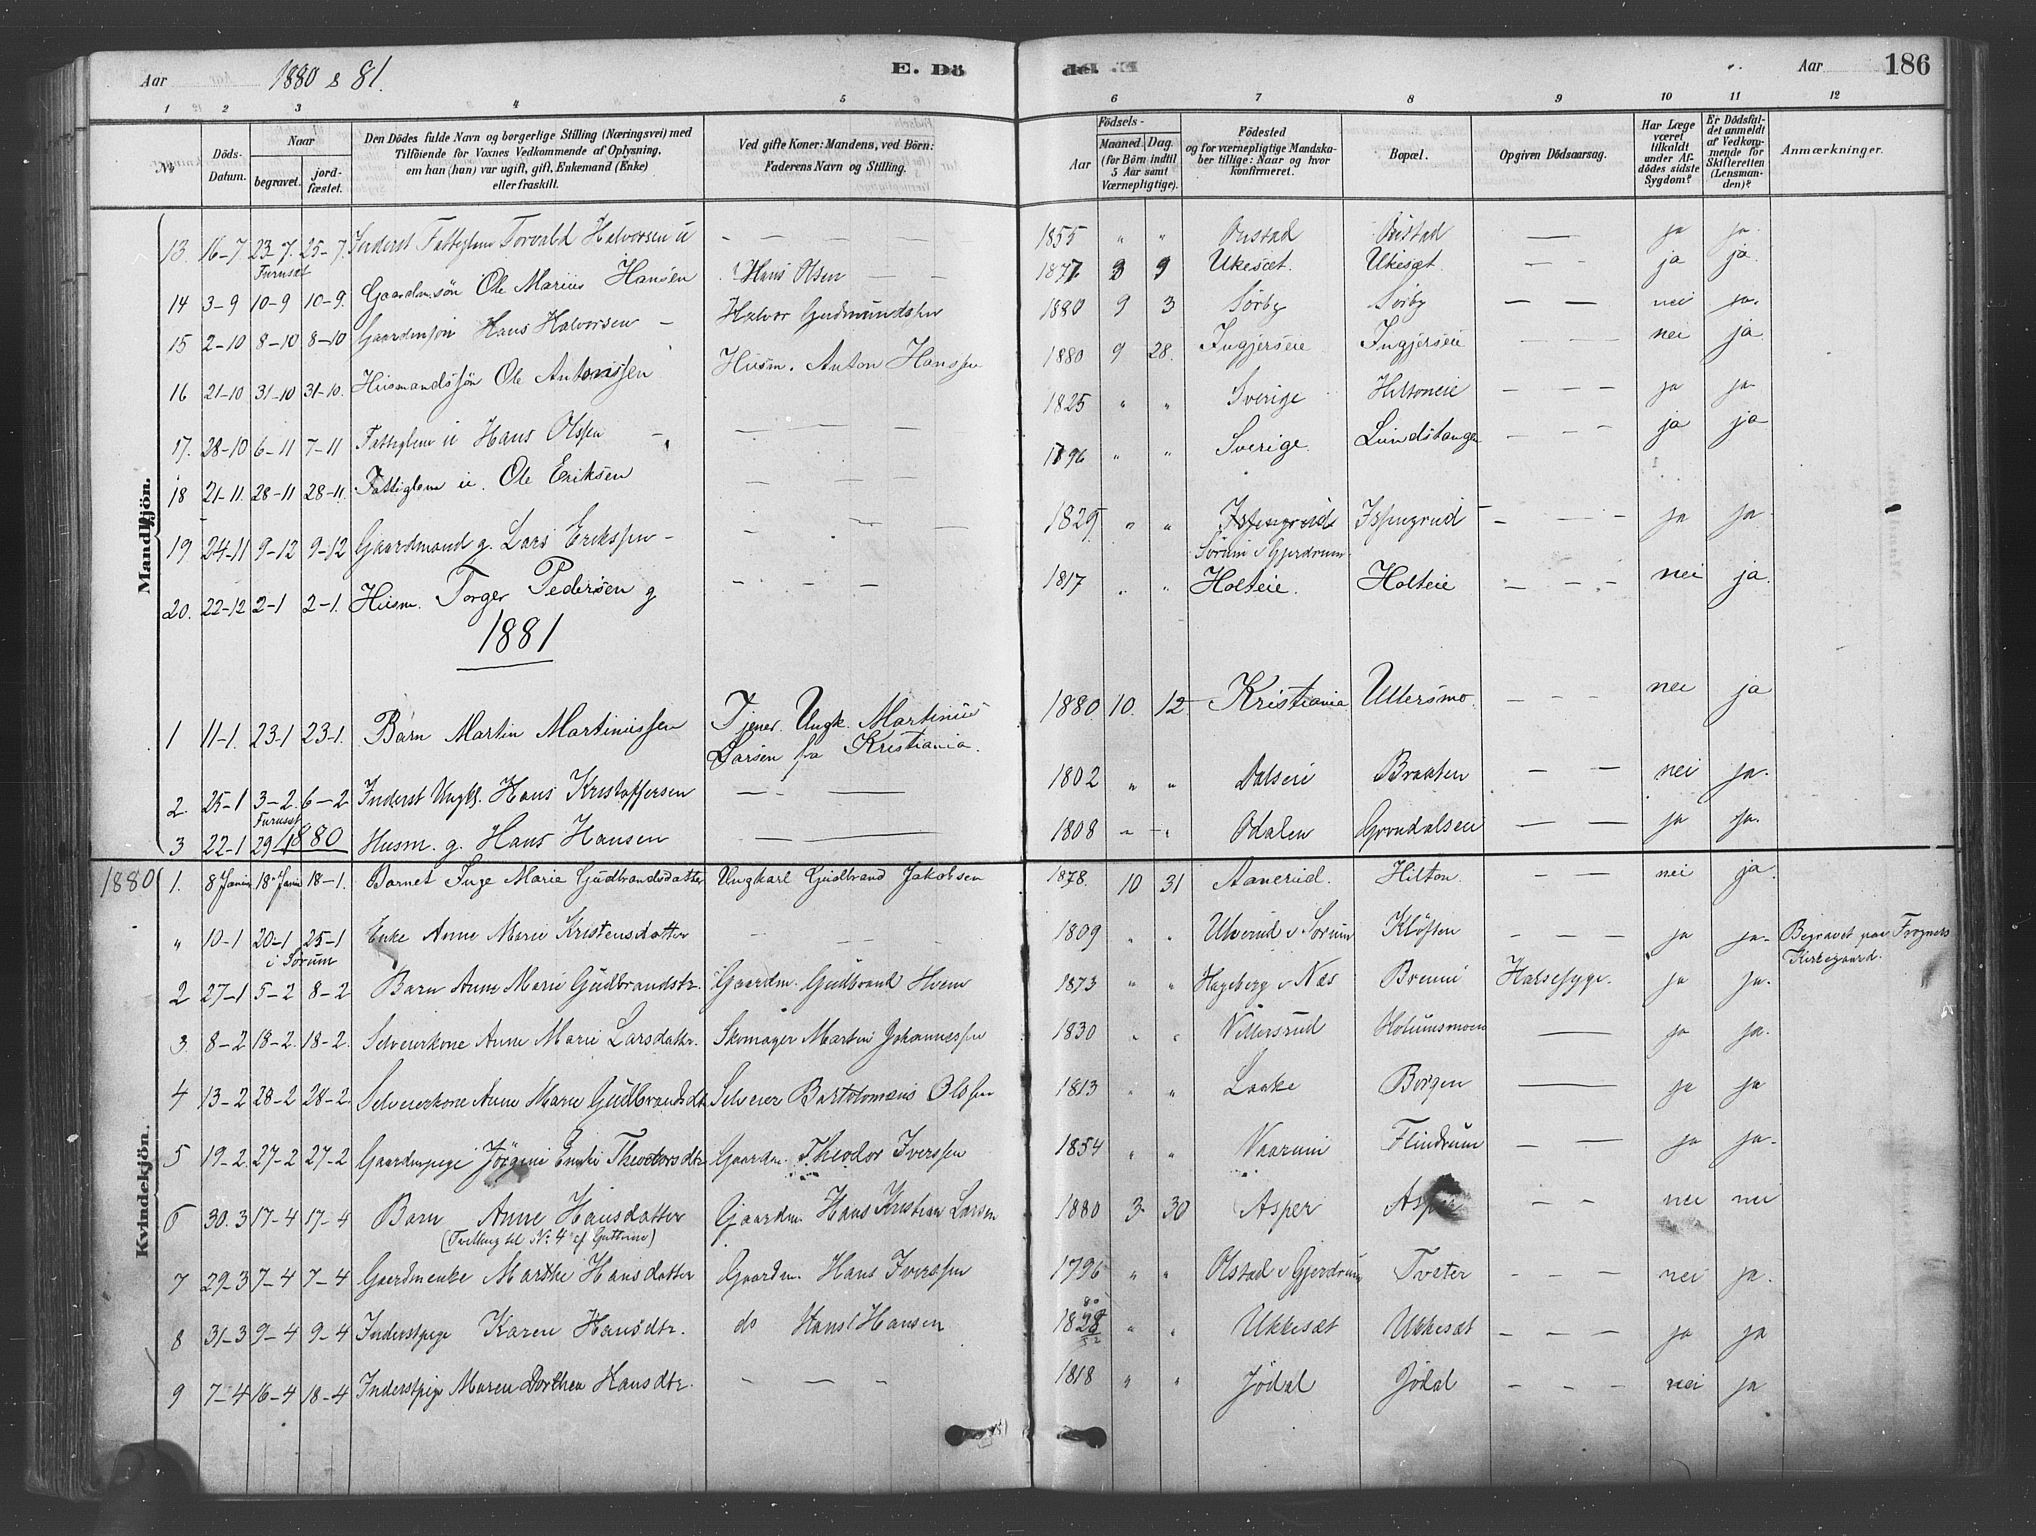 Aar 1880 & 81.
E. Dö
de. E.
Aar
186
1 2 3 4 5 6 7 8 9 10 11 12
No
Döds-Datum.
Naar
begravet.
jord-fæstet.
Den Dödes fulde Navn og borgerlige Stilling (Næringsvei) med
Tilföiende for Voxnes Vedkommende af Oplysning,
om han (hun) var ugift, gift, Enkemand (Enke)
eller fraskilt.
Ved gifte Koner: Mandens, ved Börn:
Faderens Navn og Stilling.
Födsels-
Aar
Maaned. Dag.
(for Börn indtil
5 Aar samt
Værnepligtige).
Födested
og for værnepligtige Mandska-
ber tillige: Naar og hvor
konfirmeret.
Bopæl.
Opgiven Dödsaarsag.
Har Læge
været
tilkaldt
under Af-
dödes sidste
Sygdom?
Er Dödsfal-
det anmeldt
af Vedkom-
mende for
Skifteretten
(Lensman-
den)?
Anmærkninger.
Mandkjön.
13. 16-7 23-7. 25-7 Inderst Fattiglem Torvald Halvorsen u — — — — 1855 " " Onstad — ja ja.
Furuset
14 3-9 10-9 10-9. Gaardm.sön Ole Marius Hansen Hans Olsen — — 1877 9 Ukesæt. Ukesæt — — ja ja.
15 2-10 8-10 8-10 Gaardmsön Hans Halvorsen — Halvor Gudmundsen 1880 9 3 Sörby Sörby — — nei ja.
16 21-10 31-10 31-10. Husmandssön Ole Antonissen Husm. Anton Hanssen 1880 9 28. Ingjerseie Ingjerseie — — — nei ja
17. 28-10 6-11 7-11 Fattiglem u Hans Olssen — — — — 1825 " " Sverige Hiltoneie — — — ja ja
18 21-11. 28-11 28-11. Fattiglem u. Ole Eriksen — — — 1796 " " Sverige. Lundstangen — — — ja ja
19 24-11 9-12 9-12 Gaardmand g. Lars Erikssen — — — — 1829 " " Ispengrud — — — ja ja
Sörum i Gjerdrum
20. 22-12 2-1 2-1. Husm. Torger Pedersen g — — — 1817 " " Holteie. Holteie — — — nei ja.
1881
1 11-1. 23-1 23-1. Barn Martin Martinussen Tjener Ungk. Martinus 1880 10. 12. Kristiania Ullersmo. — — nei ja
Larsen fra Kristiania.
2. 25-1 3-2. 6-2 Inderst Ungk. Hans Kristoffersen — — — 1802 " " Dalseie Braaten — — nei ja.
Furuset
3 22-1 29 1880 Husm. g. Hans Hansen — — 1808 " " Odalen — — ja ja.
Kvindekjön.
1880 1. 8 Janu 18 Janu 18-1. Barnet Inge Marie Gudbrandsdatter Ungkarl Gudbrand Jakobsen 1878. 10 31 Aanerud. Hilton. — — nei ja.
" 10-1 20-1 25-1 Enke Anne Marie Kristensdatter — — — 1809 " " Ulverud i Sörum Klöften — — — ja ja. Begravet paa Frogners
i Sörum Kirkegaard.
2 27-1 5-2 8-2 Barn Anne Marie Gudbrandsdtr. Gaardm. Gudbrand Hvem 1873 " " Hageberg i Næs Brenni Halsesyge. ja ja.
3. 8-2 18-2. 18-2. Selveierkone Anne Marie Larsdattr. Skomager Martin Johannessen 1830 " " Villersrud Holumsmoen — ja ja.
4 13-2 28-2 28-2. Selveierkone Anne Marie Gudbrandsdtr. Selveier Bartolomæus Olssen 1813 " " Laake Borgen — ja ja
5 19-2. 27-2 27-2 Gaardmpige Jörgine Emilie Theodorsdtr Gaardm. Theodor Iverssen 1854 " " Vaarum Flindrum — — ja ja.
6 30.3 17-4 17-4 Barn Anne Hansdatter Gaardm. Hans Kristian Larsen 1880 3. 30 Asper Asper — — nei nei
(Tvilling til No 4 af Guttene)
7 29-3 7-4 7-4 Gaardmenke Marthe Hansdatter Gaardm. Hans Iverssen 1796 " " Olstad i Gjerdrum Tveter — — — nei ja.
8 31-3 9-4 9-4 Inderstpige Karen Hansdtr. do Hans Hansen 1828 " " Ukkesæt Ukkesæt — — — ja ja
9 7-4 16-4 18-4 Inderstpige Maren Dorthea Hansdtr. — — — 1818 " " Jödal Jödal — — — nei ja